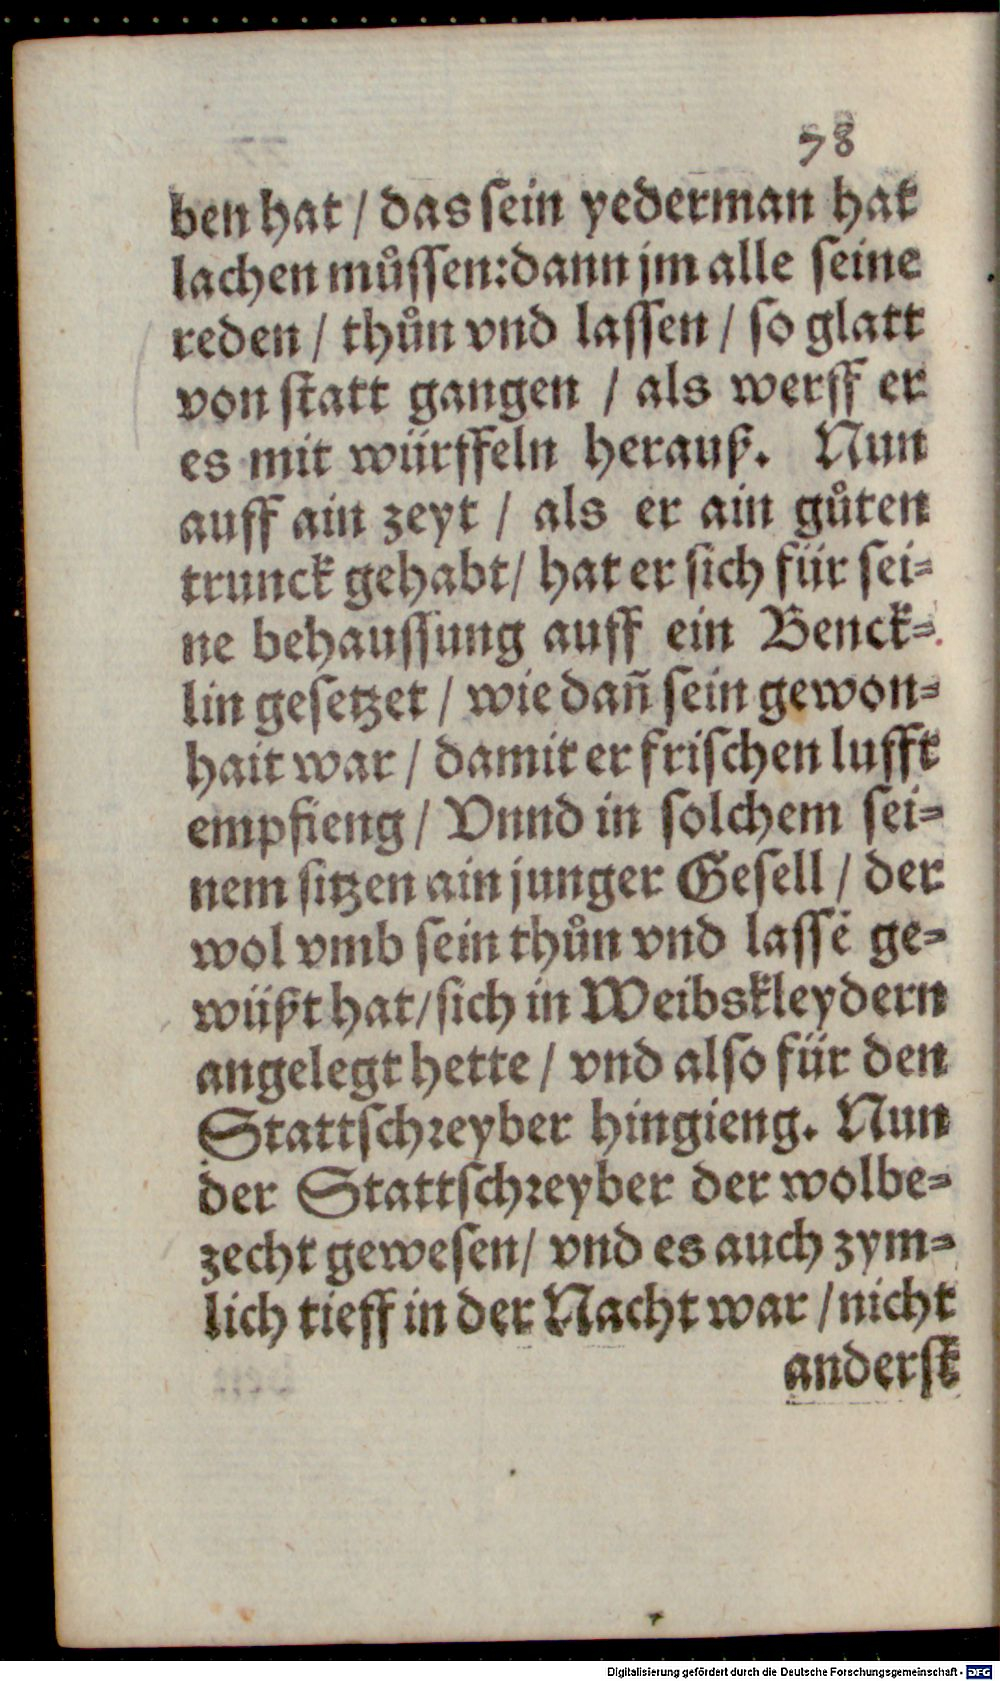 78
ben hat / das sein yederman hat
lachen můssen: dann jm alle seine
reden / thůn vnd lassen / so glatt
von statt gangen / als werff er
es mit würffeln herauß. Nun
auff ain zeyt / als er ain gůten
trunck gehabt / hat er sich für sei=
ne behaussung auff ein Benck=
lin gesetzet / wie dañ sein gewon=
hait war / damit er frischen lufft
empfieng / Vnnd in solchem sei=
nem sitzen ain junger Gesell / der
wol vmb sein thůn vnd lassē ge=
wüßt hat / sich in Weibskleydern
angelegt hette / vnd also für den
Stattschreyber hingieng. Nun
der Stattschreyber der wolbe=
zecht gewesen / vnd es auch zym=
lich tieff in der Nacht war / nicht
anderst
Digitalisierung gefördert durch die Deutsche Forschungsgemeinschaft - DFG